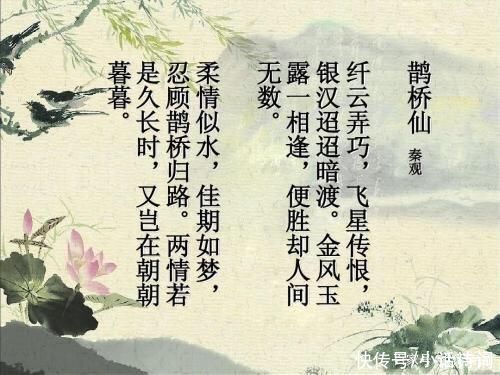 鹊桥仙
秦观
纤云弄巧，飞星传恨，
银汉迢迢暗渡。金风玉
露一相逢，便胜却人间
无数。
柔情似水，佳期如梦，
忍顾鹊桥归路。两情若
是久长时，又岂在朝朝
暮暮。
快传号/小话诗词